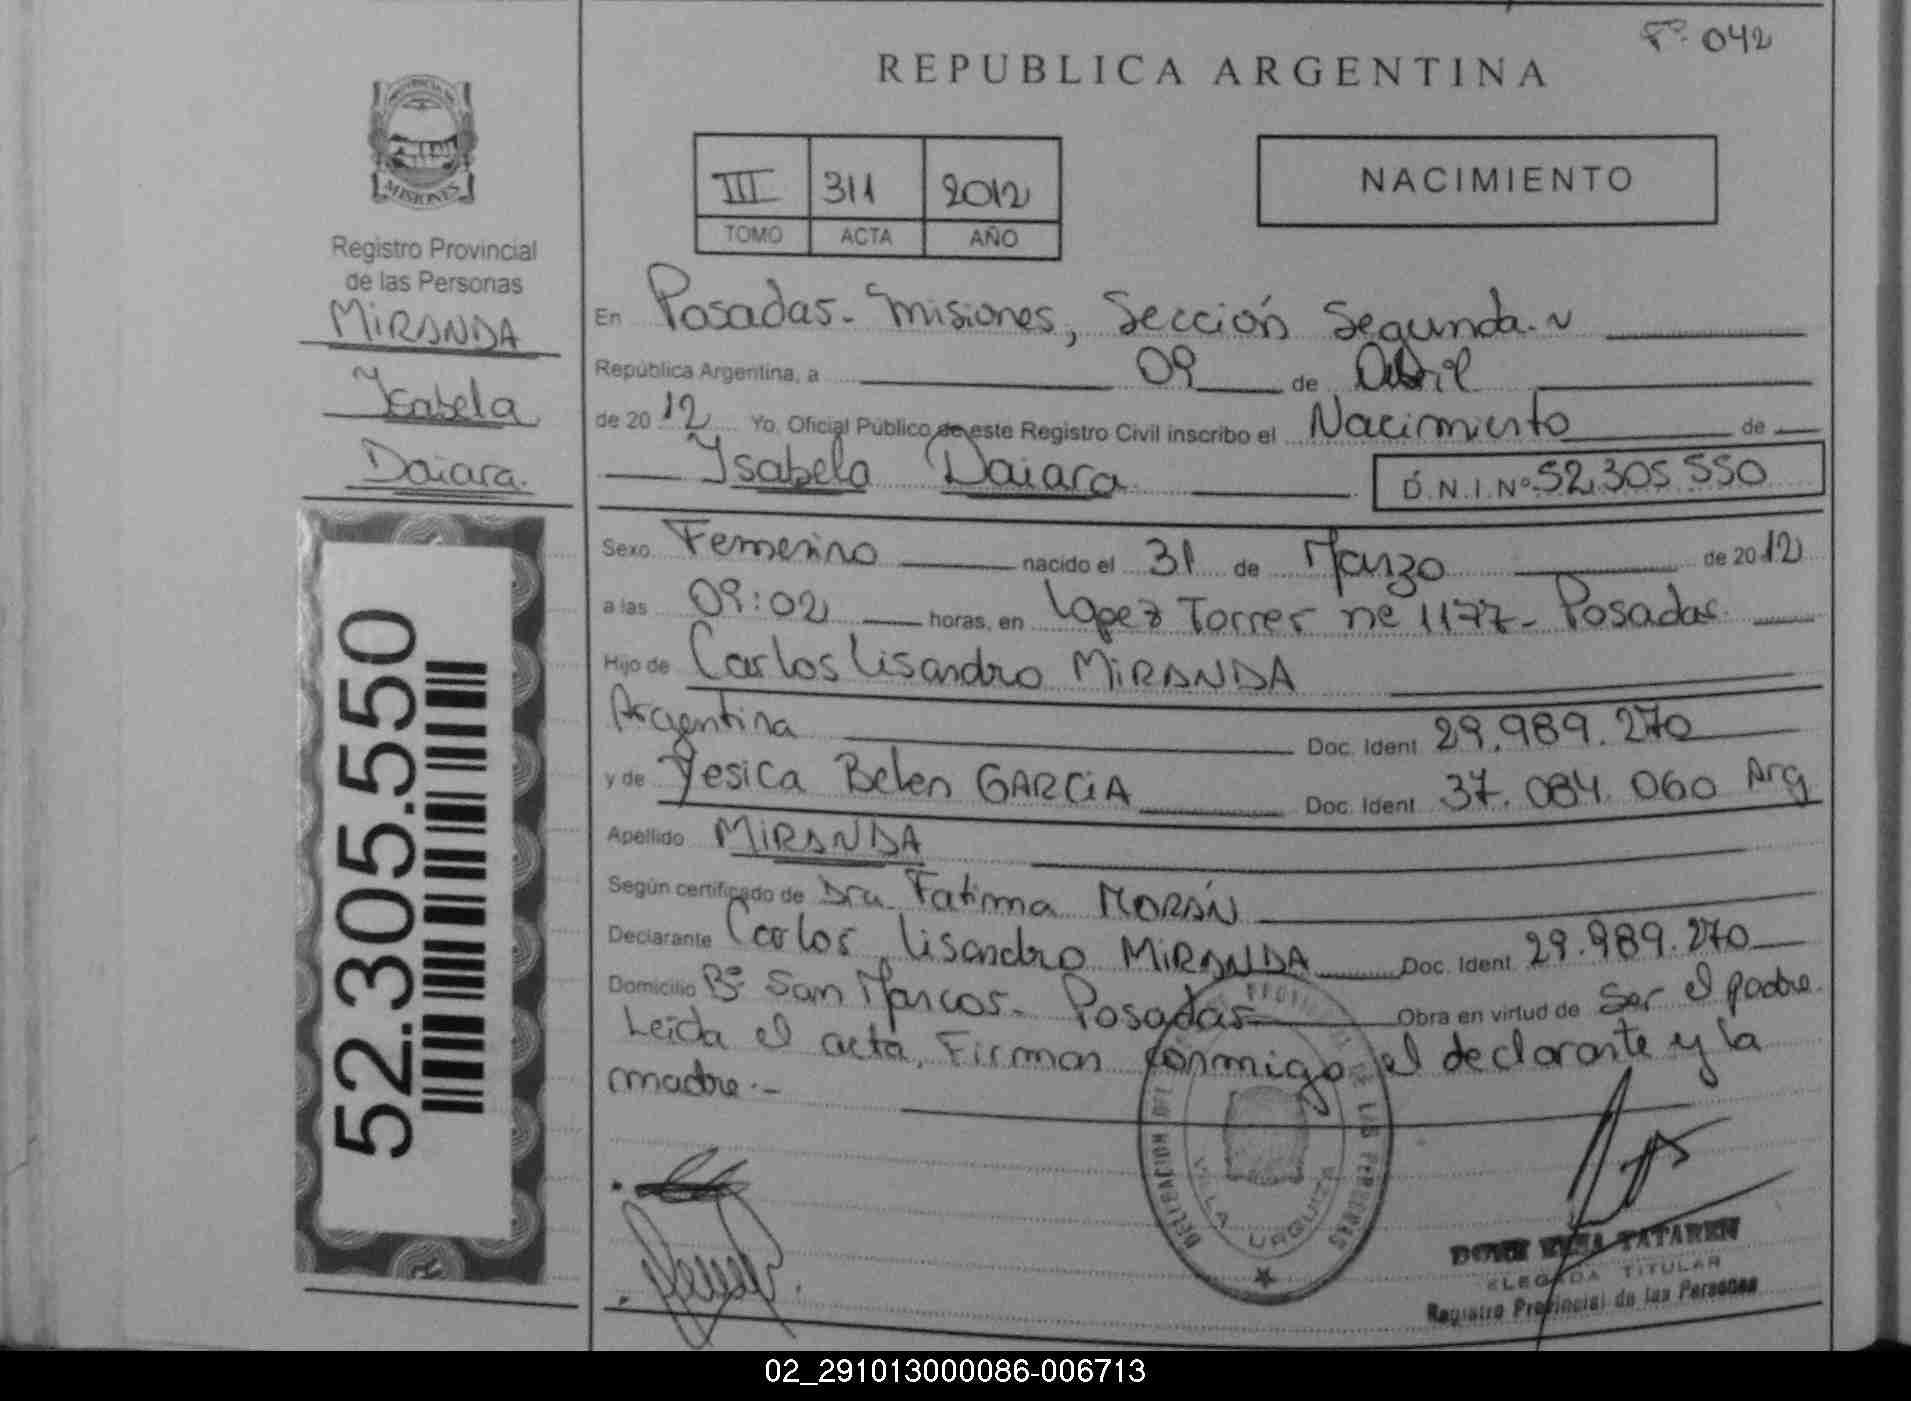 Fº 042
REPUBLICA ARGENTINA
PROVINCIA DE
MISIONES
Registro Provincial
de las Personas
MIRANDA
Isabela
Daiara.
52.305.550
III 311 2012
TOMO ACTA AÑO
NACIMIENTO
En Posadas - Misiones, Sección Segunda.
República Argentina, a 09 de Abril
de 20 12 Yo, Oficial Público de este Registro Civil inscribo el Nacimiento de
Isabela Daiara D.N.I.Nº 52.305.550
Sexo Femenino nacido el 31 de Marzo de 20 12
a las 09:02 horas, en Lopez Torres nº 1177 - Posadas
Hijo de Carlos Lisandro MIRANDA
Argentina Doc. Ident 29.989.270
y de Yesica Belen GARCIA Doc. Ident 37.084.060 Arg
Apellido MIRANDA
Según certificado de Dra. Fatima MORÁN
Declarante Carlos Lisandro MIRANDA Doc. Ident 29.989.270
Domicilio Bº San Marcos - Posadas Obra en virtud de ser el padre.
Leida el acta, Firman conmigo el declarante y la
madre.-
DELEGACION DEL PROVINCIAL DE LAS PERSONAS
VILLA URQUIZA
TATAREN
DELEGADA TITULAR
Registro Provincial de las Personas
02_291013000086-006713